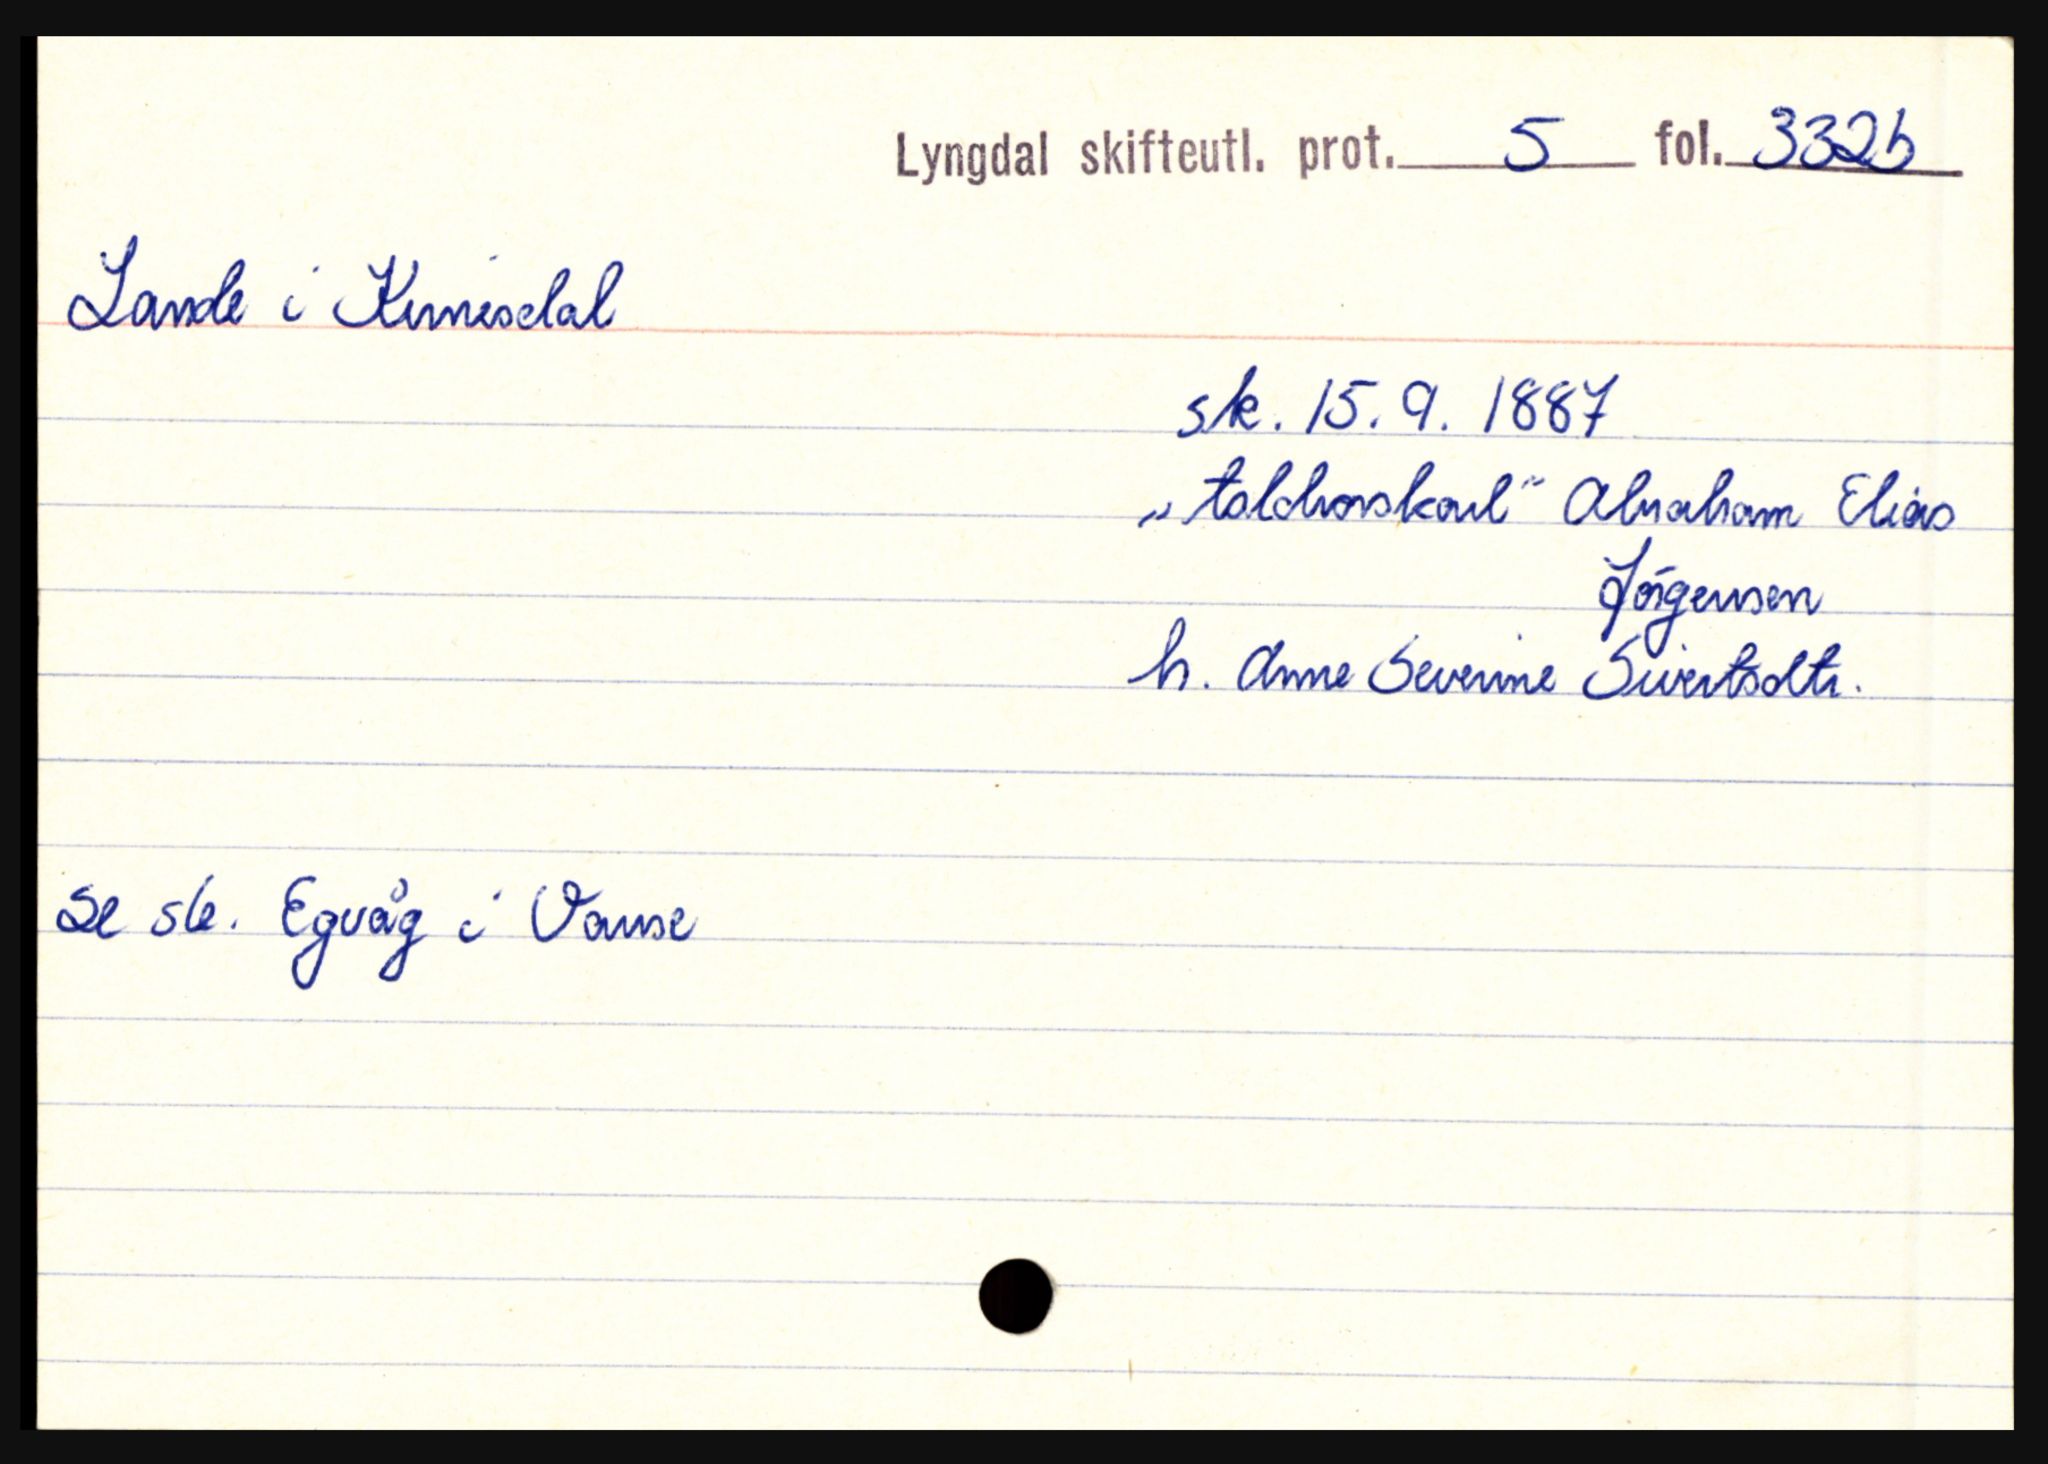 Lyngdal skifteutl. prot. 5 fol. 332b
Lande i Kvinesdal
sk. 15. 9. 1887
„ Abraham Elias
Jörgensen
h. Anne Severine Sivertsdtr.
se sk. Egvåg i Vanse